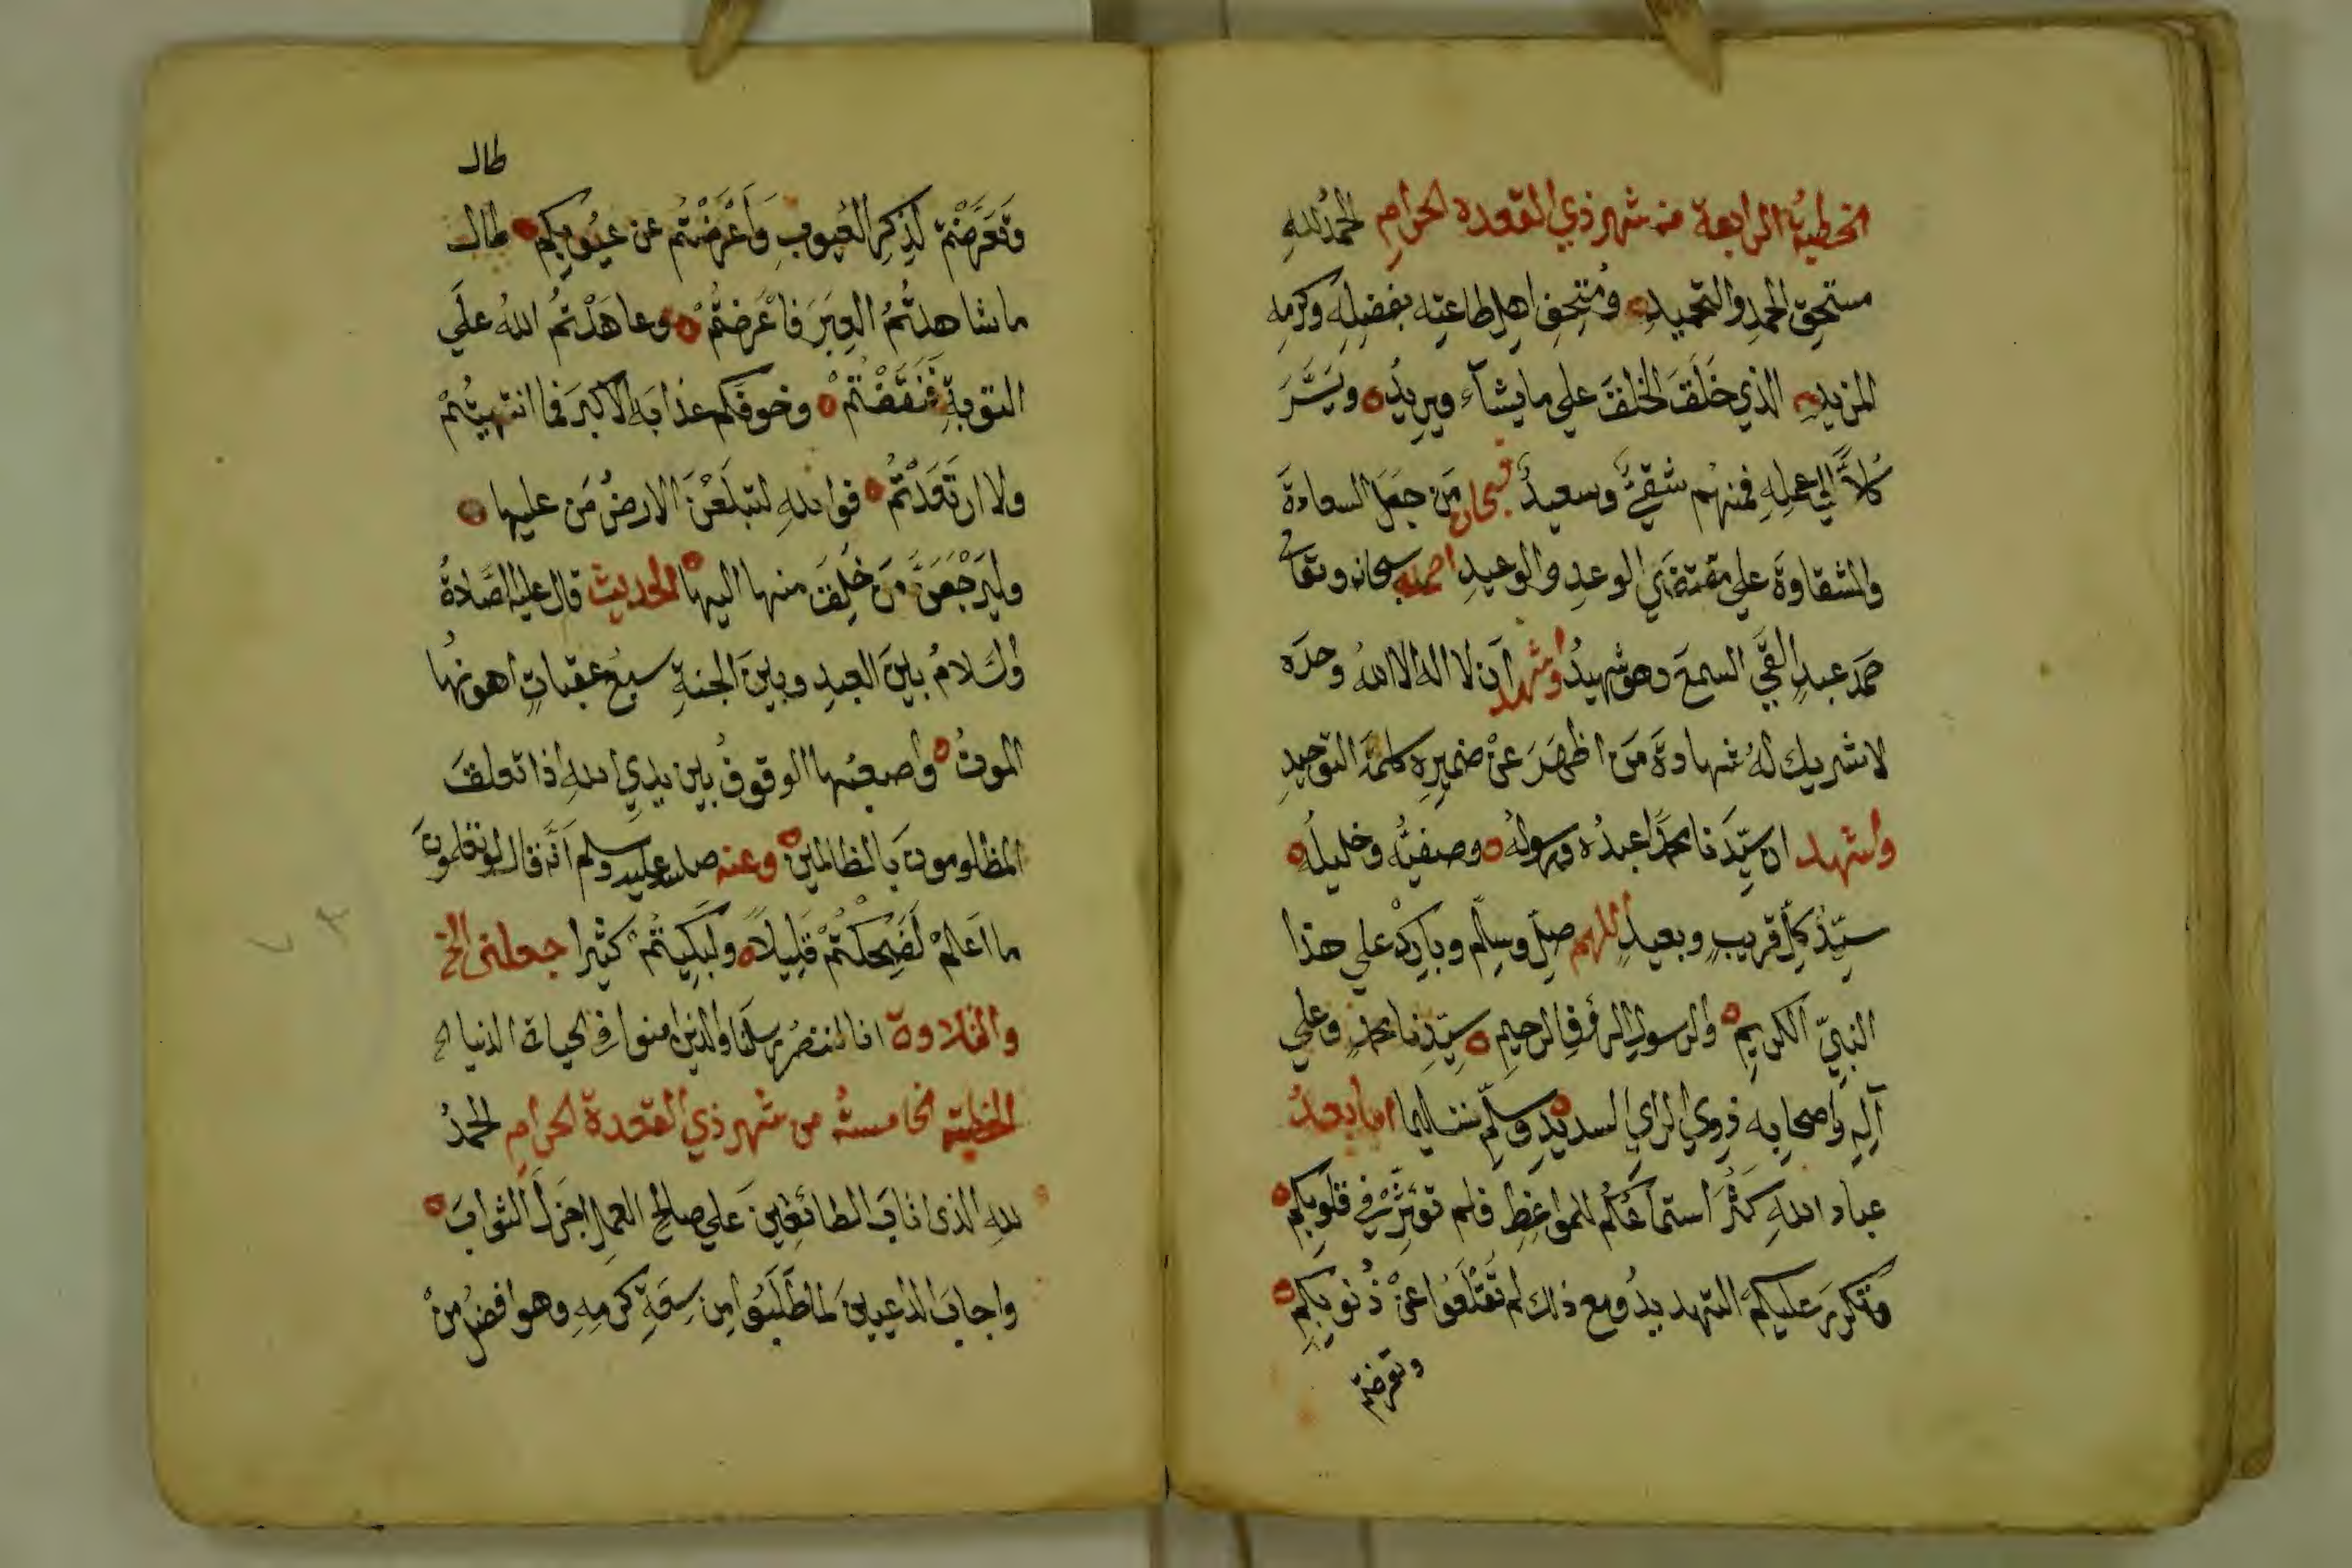 الخطبة الرابعة من شهر ذي القعدة الحرامِ الحمدُ للهِ
مستحقِ الحمدِ والتحميدِ ومُتحِفِ اهلِ طاعتِه بفضلِه وكرمِه
المزيدِ الذي خَلَقَ الخلقَ علي ما يشآء ويريدُ ويَسَّرَ
كُلاًّ الي عملِهِ فمنهُم شقيٌّ وسعيدٌ فسبحان مَن جعَلَ السعادةَ
والشقاوةَ علي مقتضَي الوعدِ والوعيدِ احمده سبحانه وتعالى
حمدَ عبدٍ القَي السمعَ وهو شهيدُ واشهد أن لا اله الا اللهُ وحدَه
لا شريك لهُ شهادةَ مَن اظهَرَ عنْ ضميرِه كلمةَ التوحيدِ
واشهد ان سيِّدَنا محمدًا عبدُه ورسولُهُ وصفيُّه وخليلُه
سيّدُ كلِّ قريبٍ وبعيدٍ اللهم صلِّ وسلِّم وباركْ علي هذا
النبيّ الكريمِ والرسولِ الرؤفِ الرحيمِ سيّدِنا محمدٍ وعلي
آلِهِ واصحابِه ذوي الراي السديدِ وسلِّمْ تسليما اما بعدُ
عباد اللهِ كَثُرَ استماعُكُم للمواعِظِ فلم تؤثِّرْ في قلوبِكم
وتكررَ عليكم التهديدُ ومع ذلك لم تُقْلَعُوا عنْ ذُنوبِكم
وتعرضتم
طال
وتَعَرَّضْتم لذِكِر العُيوبِ وَأَعْرَضْتُم عن عيُوبِكم طال
ما شاهدتُمُ العِبَرَ فَاعْرَضتُمْ وعاهَدْتُم اللهَ علَي
التوبةِ فَنَقَضْتُمْ وخوفَكم عذابَه الاكبرَ فما انتهيتُمْ
ولا ارتَعَدْتُمْ فواللهِ لتبلَعْنَ الارضُ مَن عليها
وليَرْجَعَنَّ مَن خُلِقَ منها اليها الحديث قال عليه الصَّلاةُ
والسَلامُ بينَ العبدِ وبينَ الجنةِ سبعُ عقباتٍ اهونهُا
الموتُ واصعبُها الوقوفُ بين يديِ اللهِ اذا تعلقَ
المظلومونَ بالظالمين وعنه صلى الله عليه وسلم أنَّه قال لو تعلمونَ
ما اَعلمْ لَضَحِكتُمْ قَلِيلاً ولَبَكيتُمْ كثيرا جعلنى الخ
والتلاوة انا لننصُر رسلَنا والذين امنوا في الحياة الدنيا الخ
الخطبة الخامسة من شهر ذي القعدة الحرامِ الحمدُ
للهِ الذى اثابَ الطائعِينَ علي صالحِ العملِ اجزلَ الثوابَ
واجابَ الداعيينَ لما طَلَبُوا مِن سِعَةِ كرَمِهِ وهو افضلُ منْ